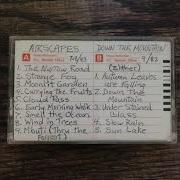 AIRSCAPES
A
1. The Narrow Road
2. Strange Fog
3. Moonlit Garden
4. Carrying the Fruits
5. Cloud Pass
6. Early Morning Walk
7. Smell the Ocean
8. Wind in Trees
DOWN THE MOUNTAIN
B
9/83
(zither)
1. Autumn Leaves
are Falling
2. Down the
Mountain
3. Under Stained
Glass
4. Slow Rain
5. Sun Lake